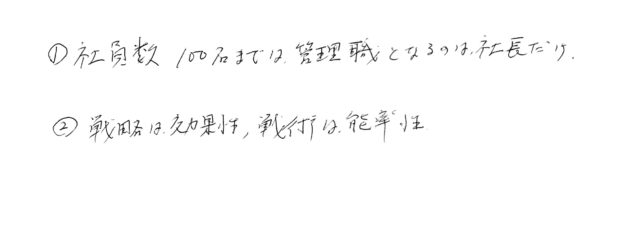 ① 社員数 100名までは、管理職となるのは、社長だけ.
② 戦略は、効果性, 戦術は、能率性